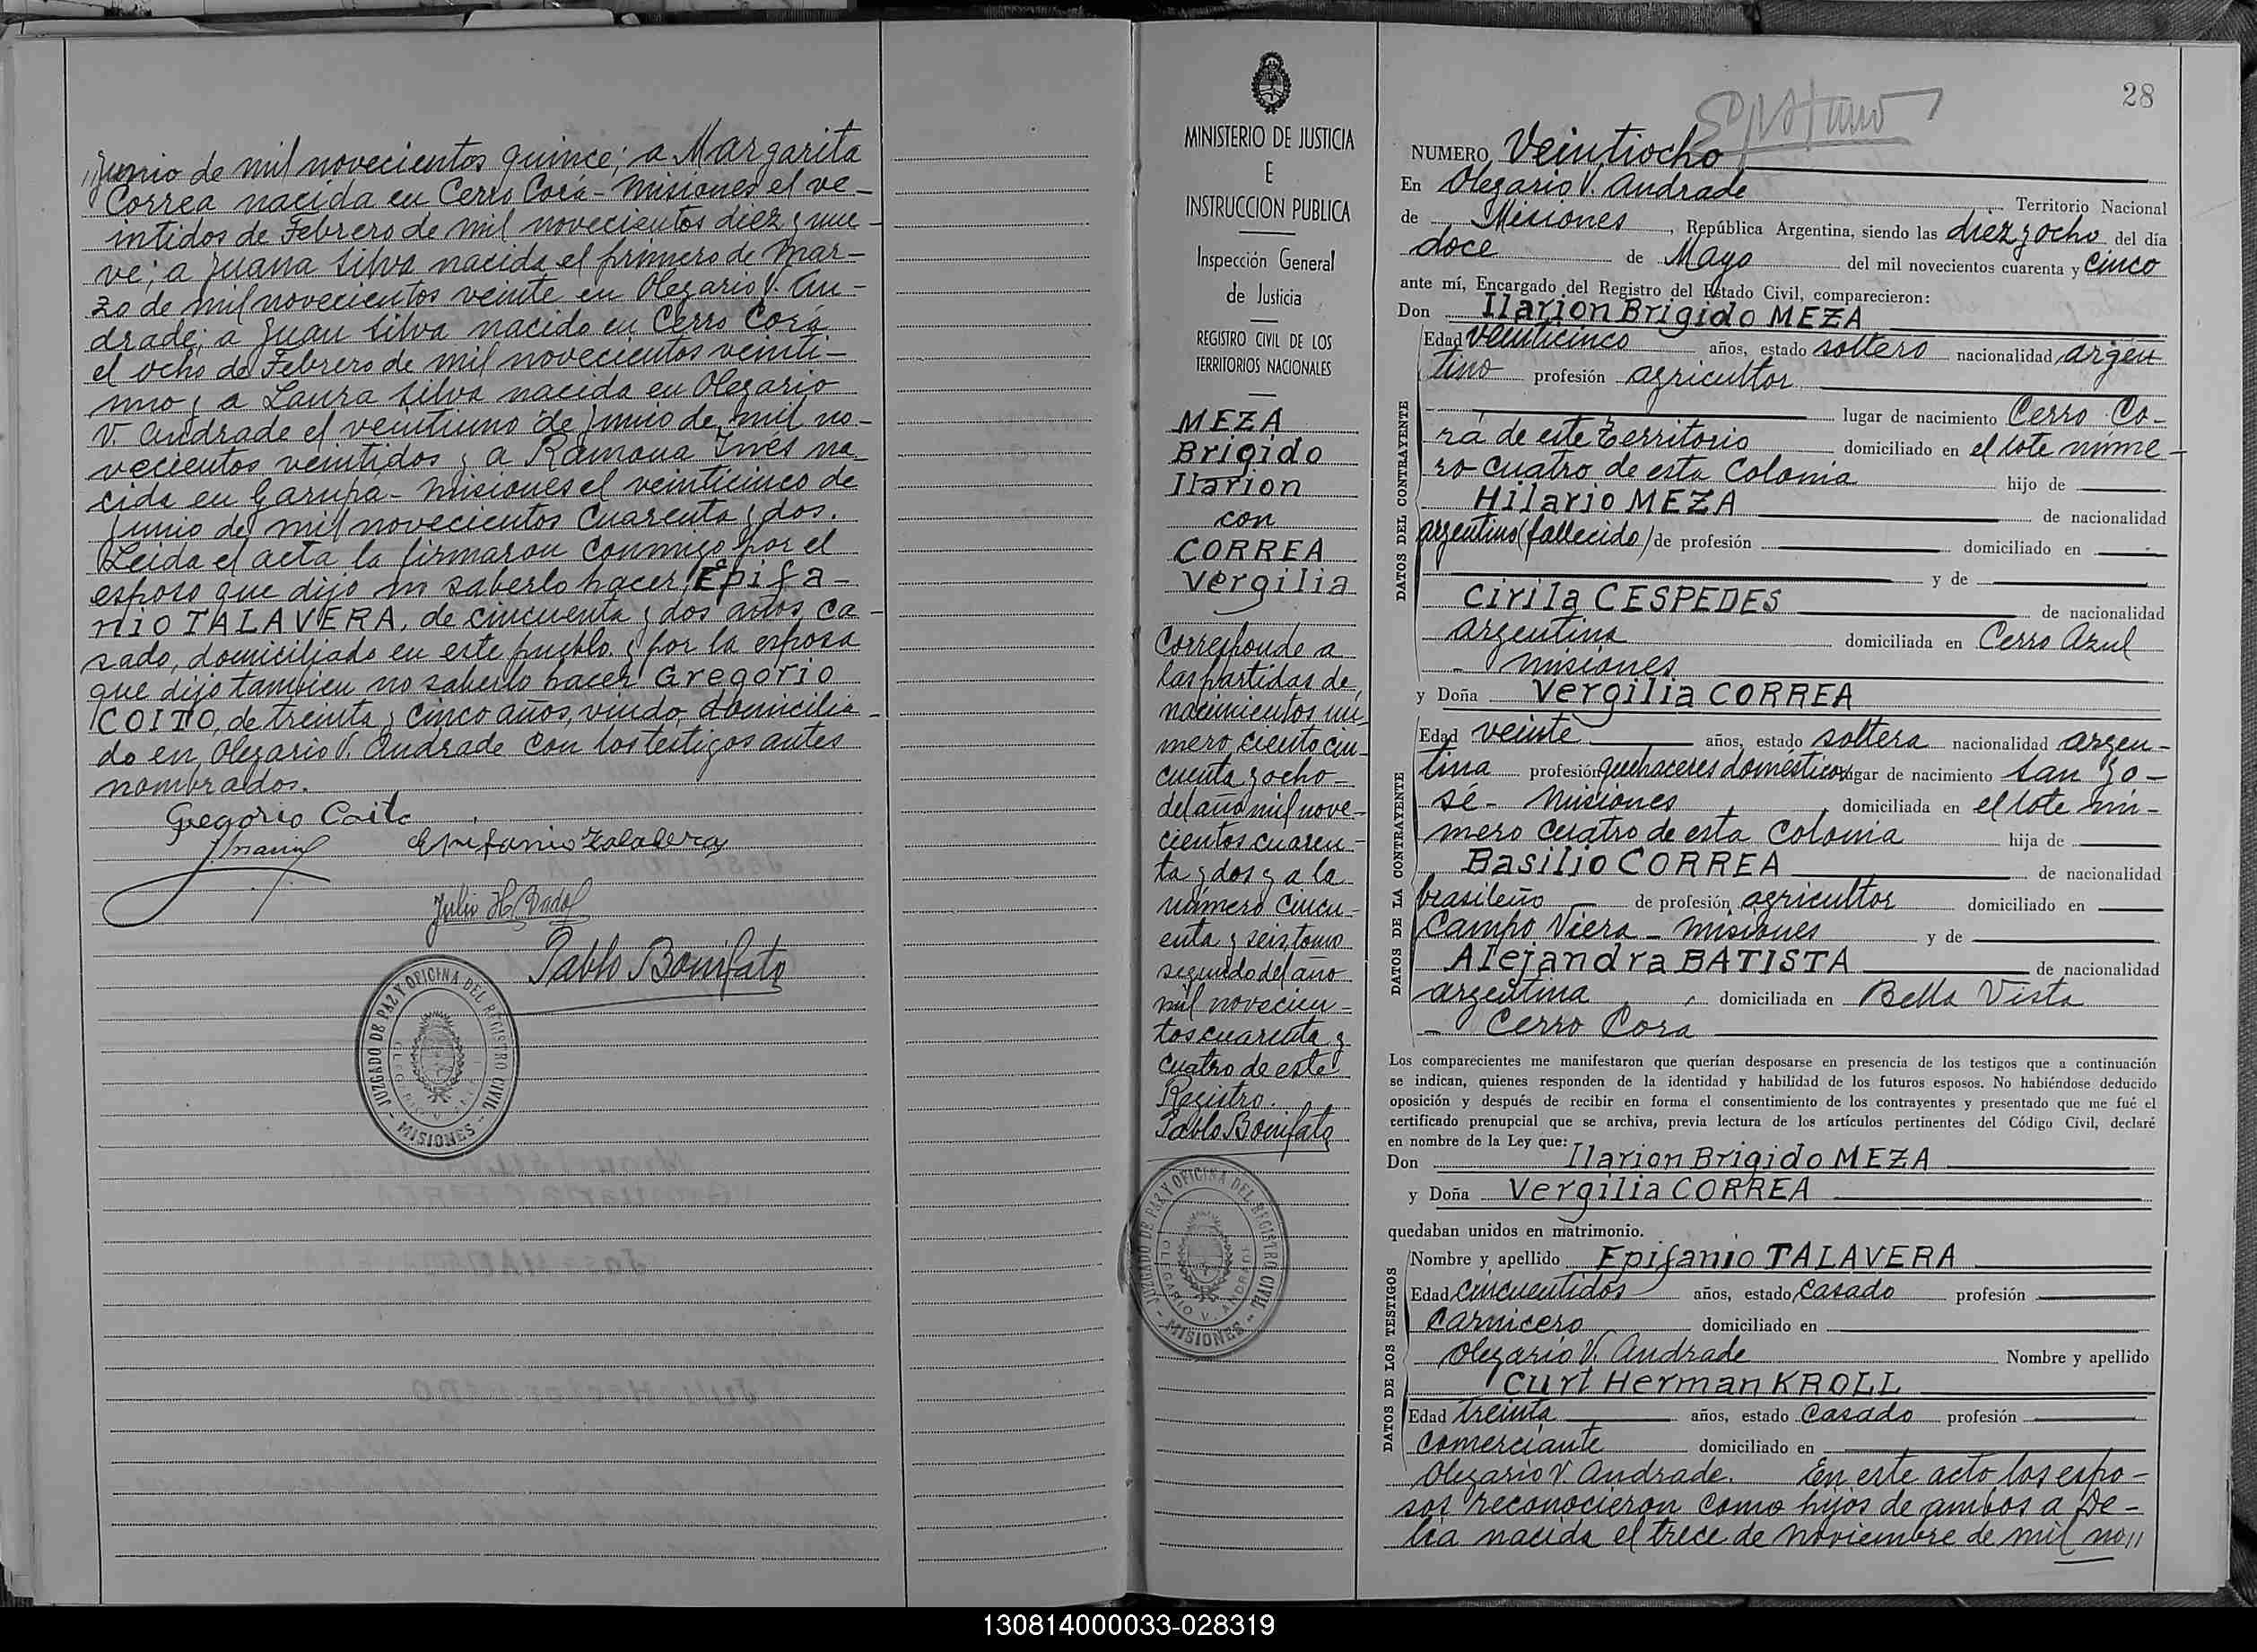 //junio de mil novecientos quince; a Margarita
Correa nacida en Cerro Corá - Misiones el ve-
intidos de Febrero de mil novecientos diez y nue-
ve; a Juana Silva nacida el primero de Mar-
zo de mil novecientos veinte en Olegario V. An-
drade; a Juan Silva nacido en Cerro Corá
el ocho de Febrero de mil novecientos veinti-
uno y a Laura Silva nacida en Olegario
V. Andrade el veintiuno de junio de mil no-
vecientos veintidos y a Ramona Inés na-
cida en Garupa - Misiones el veinticinco de
junio de mil novecientos cuarenta y dos.
Leida el acta la firmaron conmigo por el
esposo que dijo no saberlo hacer Epifa-
nio TALAVERA, de cincuenta y dos años, ca-
sado, domiciliado en este pueblo y por la esposa
que dijo tambien no saberlo hacer Gregorio
COITO, de treinta y cinco años, viudo, domicilia-
do en Olegario V. Andrade con los testigos antes
nombrados.
Gregorio Coito
Epifanio Talavera
Julio H. Dadol
Pablo Bonifato
JUZGADO DE PAZ Y OFICINA DEL REGISTRO CIVIL
- MISIONES -
MINISTERIO DE JUSTICIA
E
INSTRUCCION PUBLICA
Inspección General
de Justicia
REGISTRO CIVIL DE LOS
TERRITORIOS NACIONALES
MEZA
Brigido
Ilarion
con
CORREA
Vergilia
Corresponde a
las partidas de
nacimientos nu-
mero ciento cin-
cuenta y ocho -
del año mil nove-
cientos cuaren-
ta y dos y a la
número cincu-
enta y seis, tomo
segundo del año
mil novecien-
tos cuarenta y
cuatro de este
Registro.
Pablo Bonifato
JUZGADO DE PAZ Y OFICINA DEL REGISTRO CIVIL
OLEGARIO V. ANDRADE
- MISIONES -
28
NUMERO Veintiocho
En Olegario V. Andrade Territorio Nacional
de Misiones, República Argentina, siendo las diez y ocho del día
doce de Mayo del mil novecientos cuarenta y cinco
ante mí, Encargado del Registro del Estado Civil, comparecieron:
Don Ilarion Brigido MEZA
DATOS DEL CONTRAYENTE
Edad veinticinco años, estado soltero nacionalidad argen
tino profesión agricultor
lugar de nacimiento Cerro Co-
rá de este Territorio domiciliado en el lote núme-
ro cuatro de esta Colonia hijo de
Hilario MEZA de nacionalidad
argentino (fallecido) de profesión domiciliado en
y de
Cirila CESPEDES de nacionalidad
argentina domiciliada en Cerro Azul
- Misiones
y Doña Vergilia CORREA
DATOS DE LA CONTRAYENTE
Edad veinte años, estado soltera nacionalidad argen-
tina profesión quehaceres domésticos lugar de nacimiento San Jo-
sé - Misiones domiciliada en el lote nú-
mero cuatro de esta Colonia hija de
Basilio CORREA de nacionalidad
brasileño de profesión agricultor domiciliado en
Campo Viera - Misiones y de
Alejandra BATISTA de nacionalidad
argentina domiciliada en Bella Vista
- Cerro Cora
Los comparecientes me manifestaron que querían desposarse en presencia de los testigos que a continuación
se indican, quienes responden de la identidad y habilidad de los futuros esposos. No habiéndose deducido
oposición y después de recibir en forma el consentimiento de los contrayentes y presentado que me fué el
certificado prenupcial que se archiva, previa lectura de los artículos pertinentes del Código Civil, declaré
en nombre de la Ley que:
Don Ilarion Brigido MEZA
y Doña Vergilia CORREA
quedaban unidos en matrimonio.
DATOS DE LOS TESTIGOS
Nombre y apellido Epifanio TALAVERA
Edad cincuentidos años, estado casado profesión
carnicero domiciliado en
Olegario V. Andrade Nombre y apellido
Curt Herman KROLL
Edad treinta años, estado casado profesión
comerciante domiciliado en
Olegario V. Andrade. En este acto los espo-
sos reconocieron como hijos de ambos a De-
lia nacida el trece de noviembre de mil no//
130814000033-028319